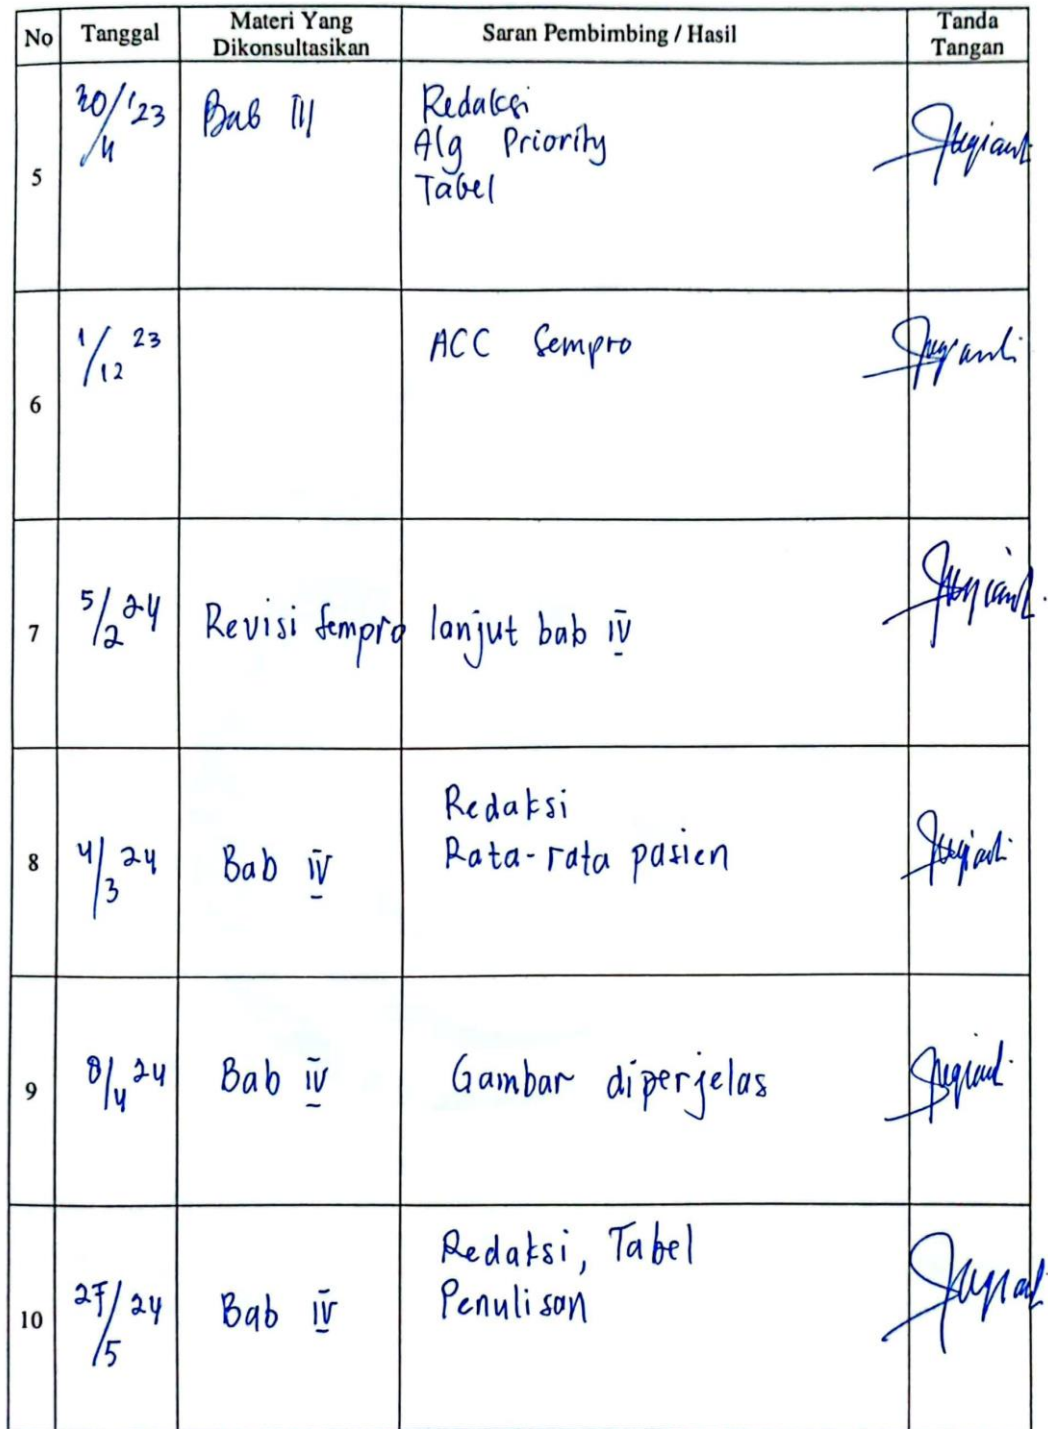 No Tanggal Materi Yang Dikonsultasikan Saran Pembimbing / Hasil Tanda Tangan
5 20/11 '23 Bab III Redaksi
Alg Priority
Tabel
6 1/12 23 ACC Sempro
7 5/2 24 Revisi Sempro lanjut bab IV
8 4/3 24 Bab IV Redaksi
Rata-rata pasien
9 8/4 24 Bab IV Gambar diperjelas
10 27/5 24 Bab IV Redaksi, Tabel
Penulisan